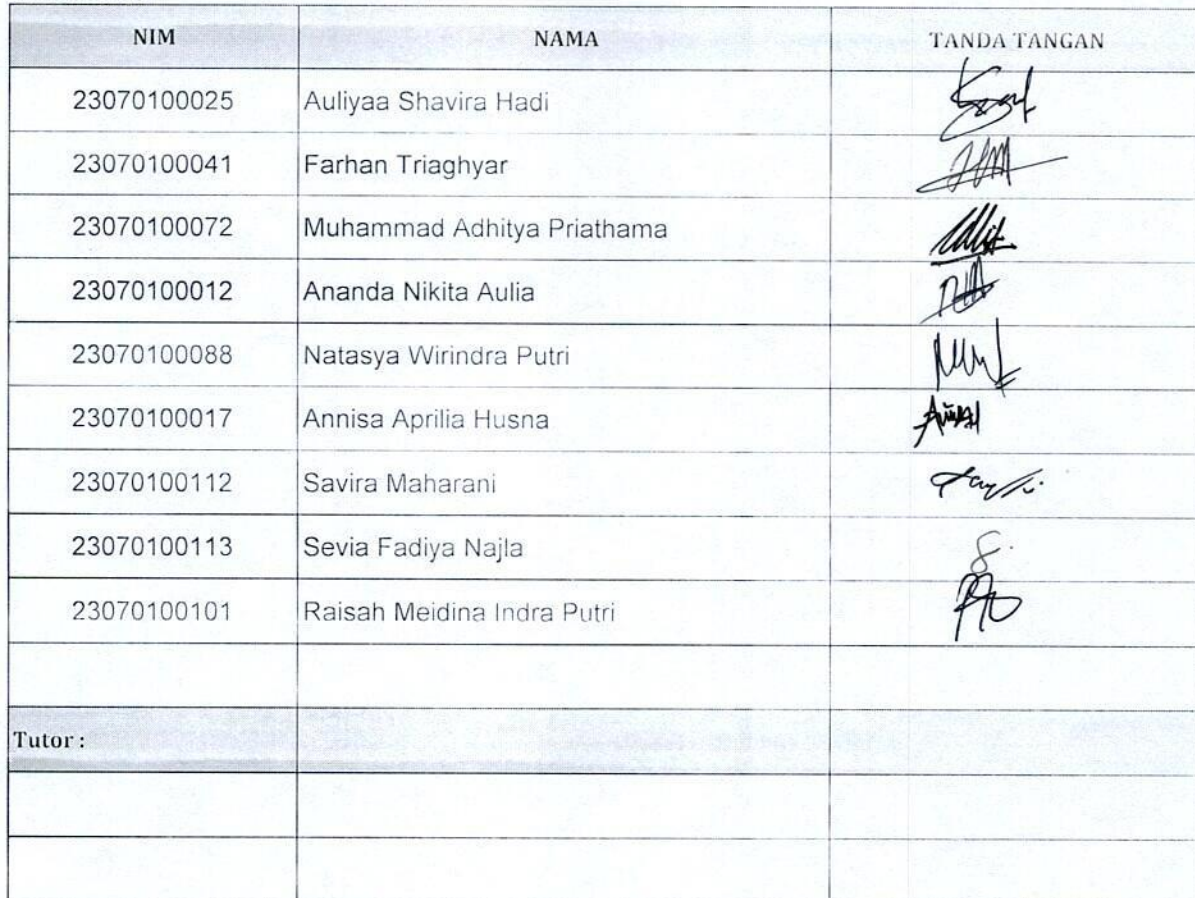 NIM NAMA TANDA TANGAN
23070100025 Auliyaa Shavira Hadi
23070100041 Farhan Triaghyar
23070100072 Muhammad Adhitya Priathama
23070100012 Ananda Nikita Aulia
23070100088 Natasya Wirindra Putri
23070100017 Annisa Aprilia Husna
23070100112 Savira Maharani
23070100113 Sevia Fadiya Najla
23070100101 Raisah Meidina Indra Putri
Tutor :